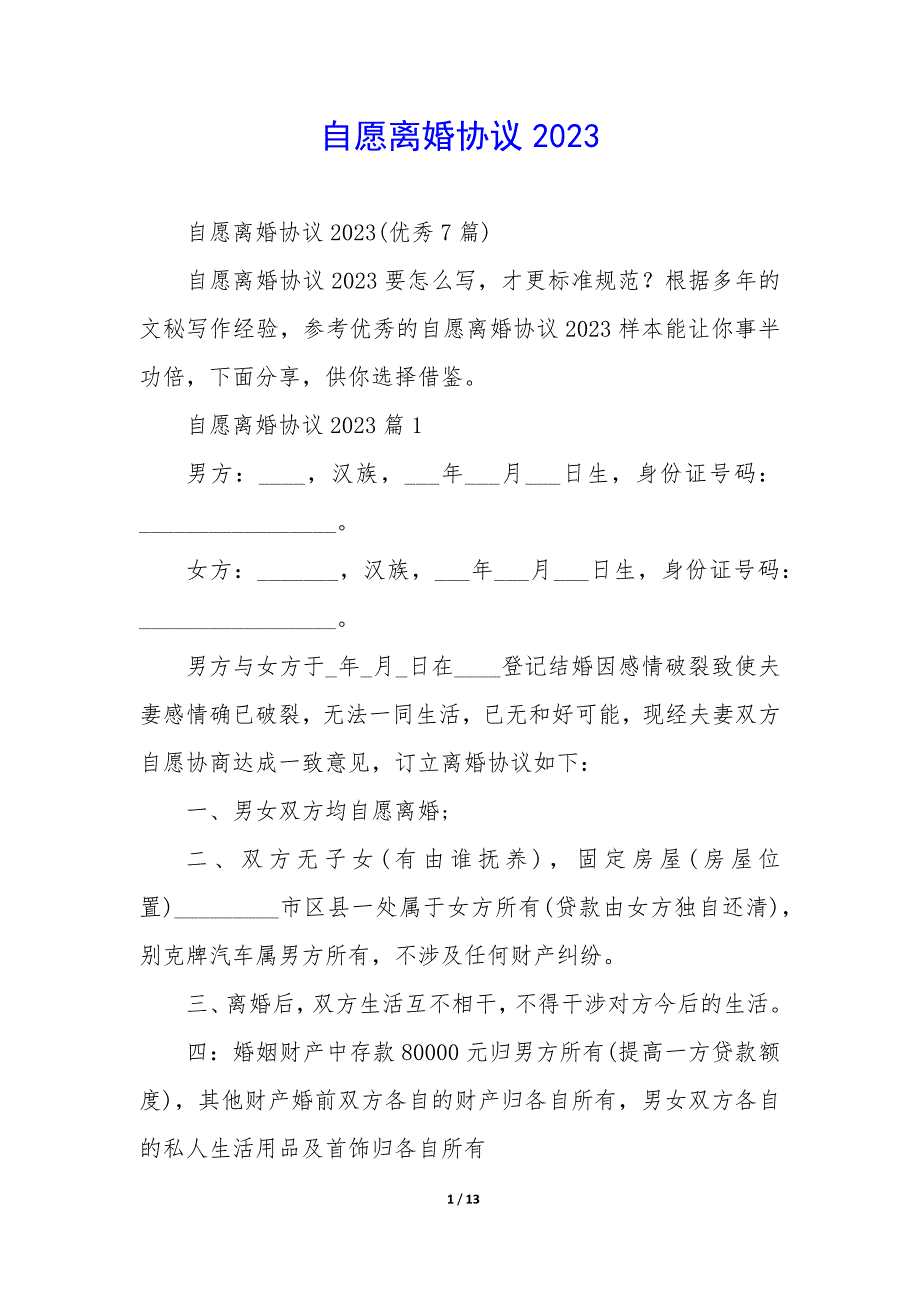 自愿离婚协议2023
自愿离婚协议2023(优秀7篇)
自愿离婚协议2023要怎么写，才更标准规范？根据多年的
文秘写作经验，参考优秀的自愿离婚协议2023样本能让你事半
功倍，下面分享，供你选择借鉴。
自愿离婚协议2023篇1
男方：____，汉族，___年___月___日生，身份证号码：
_________________。
女方：_______，汉族，___年___月___日生，身份证号码：
_________________。
男方与女方于_年_月_日在____登记结婚因感情破裂致使夫
妻感情确已破裂，无法一同生活，已无和好可能，现经夫妻双方
自愿协商达成一致意见，订立离婚协议如下：
一、男女双方均自愿离婚;
二、双方无子女(有由谁抚养)，固定房屋(房屋位
置)_________市区县一处属于女方所有(贷款由女方独自还清)，
别克牌汽车属男方所有，不涉及任何财产纠纷。
三、离婚后，双方生活互不相干，不得干涉对方今后的生活。
四：婚姻财产中存款80000元归男方所有(提高一方贷款额
度)，其他财产婚前双方各自的财产归各自所有，男女双方各自
的私人生活用品及首饰归各自所有
1 / 13